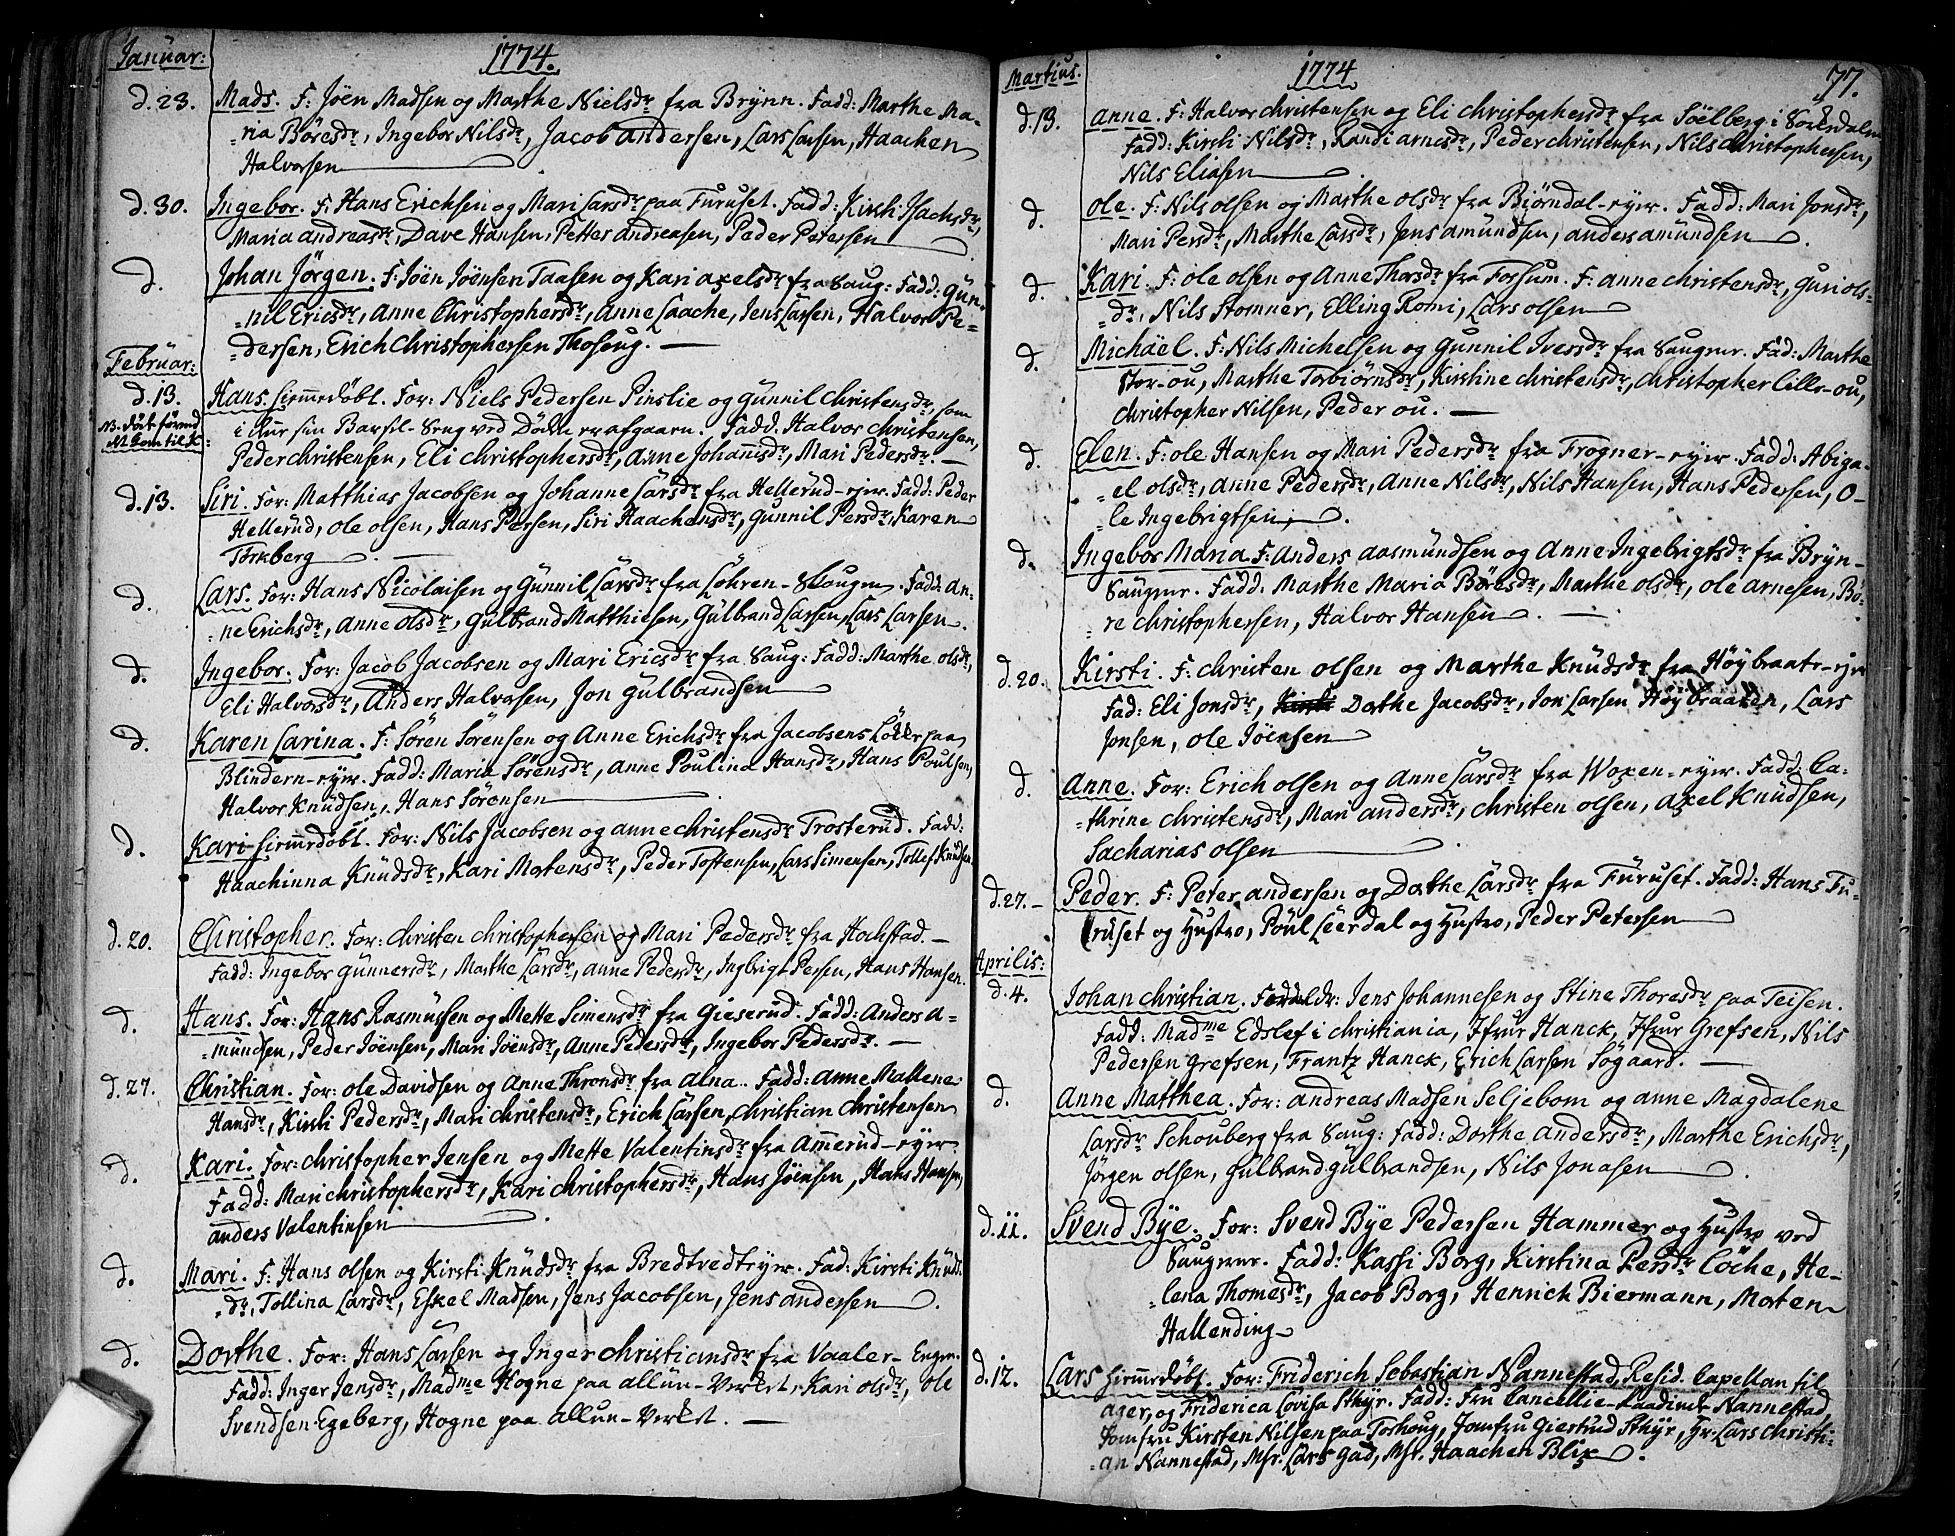 Januar:
1774.
d. 23. Mads. F: Jöen Madsen og Marthe Nielsdr fra Brynn. Fadd: Marthe Ma-
=ria Böresdr, Ingebor Nilsdr, Jacob Andersen, Lars Larsen, Haachen
Halvorsen
d. 30. Ingebor. F: Hans Erichsen og Mari Larsdr paa Furuset. Fadd: Kirsti Isachsdr,
Maria Andreasdr, Dave Hansen, Petter Andreasen, Peder Petersen
d. Johan Jörgen. F: Jöen Jöensen Taasen og Kari Axelsdr fra Saug: Fadd: Gün-
=nil Ericsdr, Anne Christophersdr, Anne Laache, Jens Larsen, Halvor Pe-
=dersen, Erich Christophersen Thoshoug.
Februar:
d. 13. Hans hiemmedöbt. For: Niels Pedersen Pinslie og Gunnil Christensdr, som
NB. Död förend
det kom til K:
i sin Barsel-Seng ved Döden er afgaaen. Fadd. Halvor Christensen,
Peder Christensen, Eli Christophersdr, Anne Johannisdr, Mari Pedersdr.
d. 13. Siri. For: Matthias Jacobsen og Johanne Larsdr fra Hellerud-ejer. Fadd: Peder
Hellerüd, Ole Olsen, Hans Persen, Siri Haachensdr, Gunnil Persdr, Karen
Torkberg
d. Lars. For: Hans Nicolaisen og Gunnil Larsdr fra Löhren-Saugen. Fadd: An-
=ne Erichsdr, Anne Olsdr, Gulbrand Matthiesen, Gulbrand Larsen, Lars Larsen.
d. Ingebor. For: Jacob Jacobsen og Mari Ericsdr fra Saug: Fadd: Marthe Olsdr,
Eli Halvorsdr, Anders Halvorsen, Jon Gulbrandsen
d. Karen Carina. F: Sören Sörensen og Anne Erichsdr fra Jacobsens Lökke paa
Blindern-eyer. Fadd: Maria Sörensdr, Anne Poulina Hansdr, Hans Poulsen,
Halvor Knudsen, Hans Sörensen
d. Kari hiemmedöbt. For: Nils Jacobsen og Anne Christensdr Trosterud. Fadd:
Haachinna Knüdsdr, Kari Mortensdr, Peder Toftensen, Lars Simensen, Tollef Knudsen
d. 20. Christopher. For: Christen Christophersen og Mari Pedersdr fra Hochstad.
Fadd: Ingebor Gunnersdr, Marthe Larsdr, Anne Pedersdr, Ingbrigt Persen, Hans Hansen.
d. Hans. For: Hans Rasmüssen og Mette Simensdr fra Gieserud. Fadd: Anders A-
=mündsen, Peder Jöensen, Mari Jöensdr, Anne Pedersdr, Ingebor Pedersdr.
d. 27. Christian. For: Ole Davidsen og Anne Thronsdr fra Alna. Fadd: Anne Mallene
Hansdr, Kirsti Pedersdr, Mari Christensdr, Erich Larsen, Christian Christensen
d. Kari. For: Christopher Jensen og Mette Valentinsdr fra Ammerud-eyer
Fadd: Mari Christophersdr, Kari Christophersdr, Hans Jöensen, Hans Hansen,
Anders Valentinsen
d. Mari. F: Hans Olsen og Kirsti Knüdsdr fra Bredtvedteyer. Fad: Kirsti Knüds
=dr, Tollina Larsdr, Eskel Madsen, Jens Jacobsen, Jens Andersen.
d. Dorthe. For: Hans Larsen og Inger Christiansdr fra Vaaler-Engen.
Fadd: Inger Jensdr, Madme Hogne paa Allun-Verket, Kari Olsdr, Ole
Svendsen Egeberg, Hogne paa Allun-Verket.
Martius.
1774
77.
d. 13. Anne. F: Halvor Christensen og Eli Christophersdr fra Söelberg i Sörkedalen
Fadd: Kirsti Nilsdr, Randi Arnesdr, Peder Christensen, Nils Christophersen,
Nils Eliasen
d. Ole. F: Nils Olsen og Marthe Olsdr fra Biörndal-eyer. Fadd: Mari Jonsdr,
Mari Persdr, Marthe Larsdr, Jens Amündsen, Anders Amündsen.
d. Kari. F: Ole Olsen og Anne Thorsdr fra Fossum. F: Anne Christensdr, Guri Ols-
=dr, Nils Stomner, Elling Romi, Lars Olsen
d. Michael. F: Nils Michelsen og Gunnil Iversdr fra Saugener. Fad: Marthe
Stor-ou, Marthe Torbiörnsdr, Kirstine Christensdr, Christopher Lille-ou,
Christopher Nilsen, Peder ou.
d. Elen. F: Ole Hansen og Mari Pedersdr fra Frogner-eyer. Fadd: Abiga-
=el Olsdr, Anne Pedersdr, Anne Nilsdr, Nils Hansen, Hans Pedersen, O-
=le Ingebrigtsen.
d. Ingebor Maria F: Anders Aasmündsen og Anne Ingebrigtsdr fra Bryn-
Saugener. Fadd: Marthe Maria Börresdr, Marthe Olsdr, Ole Arnesen, Bö-
=re Christophersen, Halvor Hansen.
d. 20. Kirsti. F: Christen Olsen og Marthe Knüdsdr fra Höybraate-ejer
Fad: Eli Jonsdr, Dorthe Jacobsdr, Jon Larsen Höybraaten, Lars
Jonsen, Ole Jöensen
d. Anne. For: Erich Olsen og Anne Larsdr fra Woxen-eyer. Fadd: Ca-
=thrine Christensdr, Mari Andersdr, Christen Olsen, Axel Knüdsen,
Sacharias Olsen
d. 27. Peder. F: Peter Andersen og Dorthe Larsdr fra Füruset. Fadd: Hans Fu-
ruset og Hustro, Poul Leerdal og Hustro, Peder Petersen
Aprilis:
d. 4. Johan Christian. Forældr: Jens Johannesen og Stine Thoresdr paa Teisen.
Fadd: Madme Edslef i Christiania, Jfrur Hanck, Jfrur Grefsen, Nils
Pedersen Grefsen, Frantz Hanck, Erich Larsen Sögaard.
d. Anne Matthea. For: Andreas Madsen Seljebom og Anne Magdalene
Larsdr Schouberg fra Saug: Fadd: Dorthe Andersdr, Marthe Erichsdr,
Jörgen Olsen, Gulbrand Gulbrandsen, Nils Jonasen.
d. 11. Svend Bye. For: Svend Bye Pedersen Hammer og Hustro ved
Saugener. Fadd: Kassi Borg, Kirstina Persdr Löche, He-
=lena Thomesdr, Jacob Borg, Henrich Biermann, Morten
Hallending
d. 12. Lars hiemmedöbt. For: Friderich Sebastian Nannestad, Resid. Capellan til
Ager, og Friderica Lovisa Sthyr. Fadd: Fru Cancellie-Raadinde Nannestad,
Jomfru Kirsten Nilsen paa Torshoug, Jomfru Giertrud Sthyr, Hr. Lars Christi-
=an Nannestad, Msr. Lars Gad, Msr. Haachen Blix.